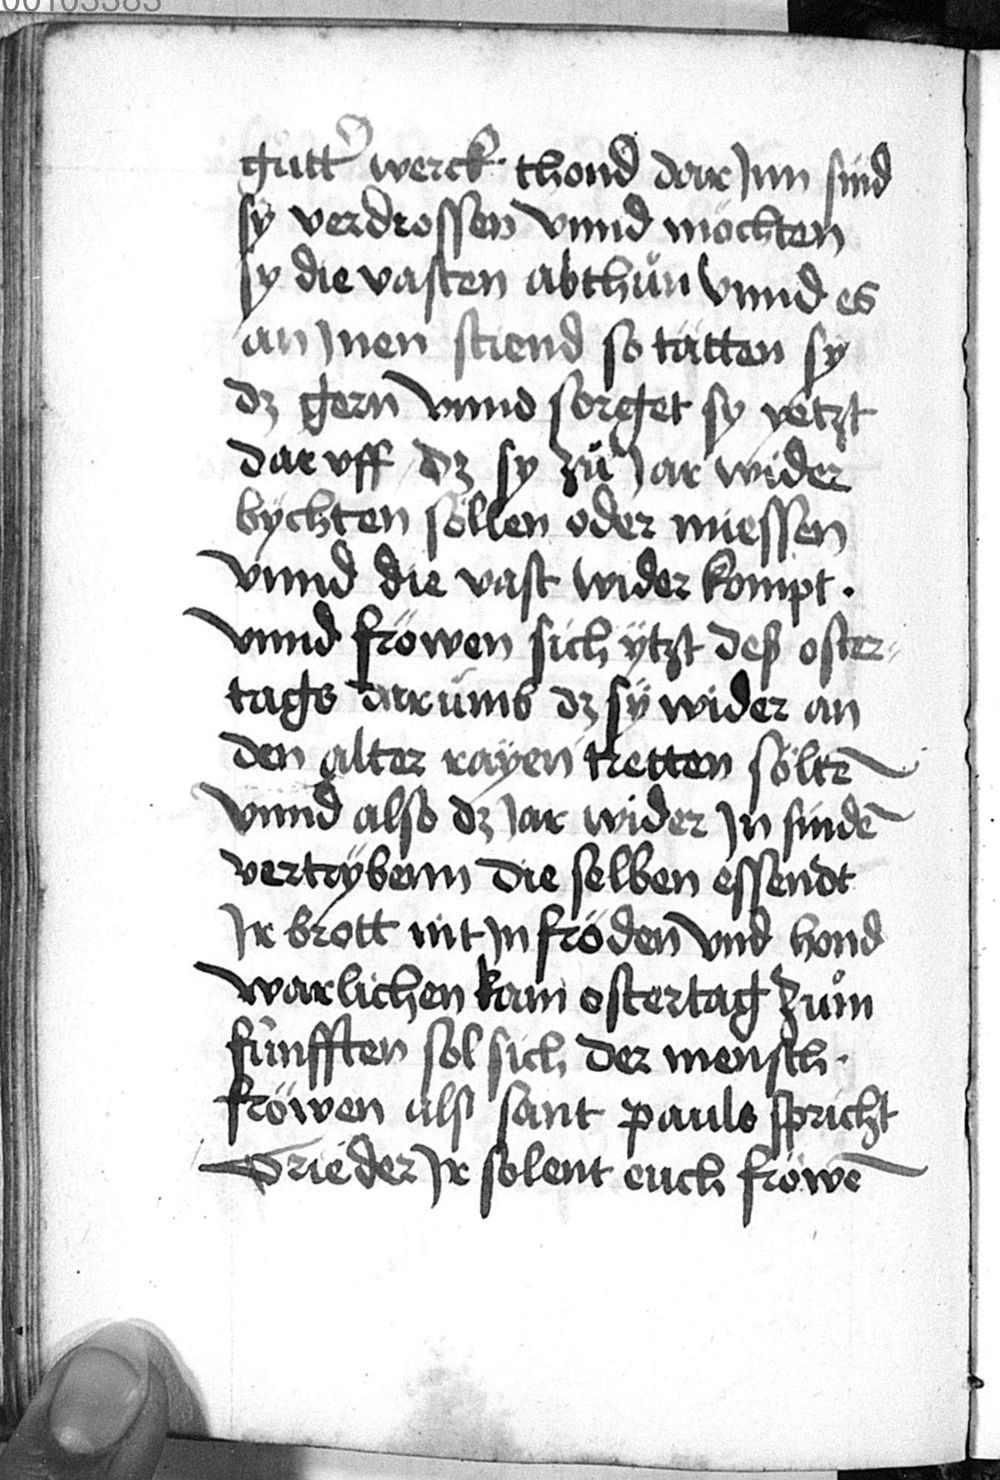 00103383
gůtt werck thond dar Jnn sind
sy verdrossen vnnd möchten
sy die vasten abthůn vnnd es
an Jnen stiend so tätten sy
dz gern vnnd sorget sy yetzt
dar vff dz sy zů Jar wider
bychten söllen oder miessen
vnnd die vast wider kompt.
vnnd fröwen sich ÿtzt deß oster-
tags darumb dz sÿ wider an
den alter rayen tretten sölt
vnnd also dz Jar wider Jn sindē
vertrÿbenn die selben essendt
Jr brott nit Jn fröden vnd hond
warlichen kain ostertag zům
fünfften sol sich der mensch.
fröwen alß sant pauls spricht
Brieder Jr solent euch fröwē